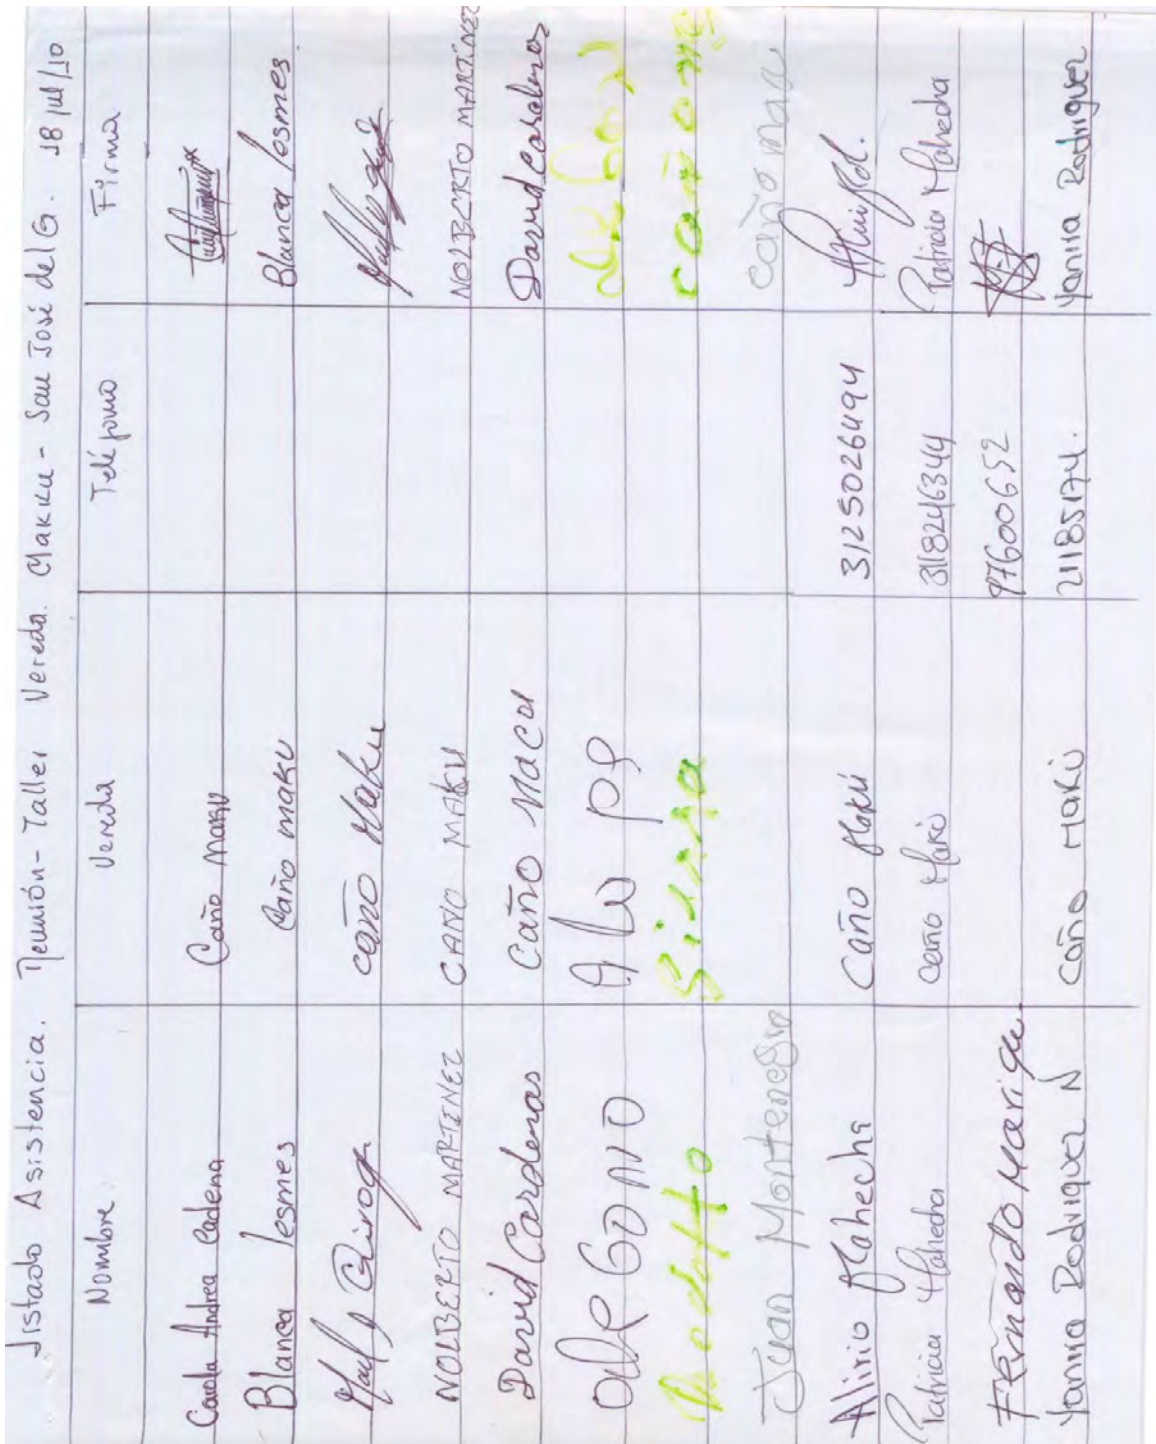 Listado Asistencia. Reunión-Taller Vereda. Makku - San José del G. 18 jul/10
Nombre. Vereda Teléfono Firma
Carola Andrea Cadena Caño maku
Blanca lesmes Caño maku Blanca lesmes
caño Maku
NOLBERTO MARTINEZ CAÑO MAKU NOLBERTO MARTÍNEZ
David Cardenas Caño Macu David Cardenas
caño
Juan Montenegro caño mac
Alirio Mahecha Caño Makú 3125026494
Patricia Mahecha Caño Makú 3118246344 Patricia Mahecha
Fernando Marique 97600652
Yanira Rodriguez N Caño Makú 21185174. Yanira Rodriguez